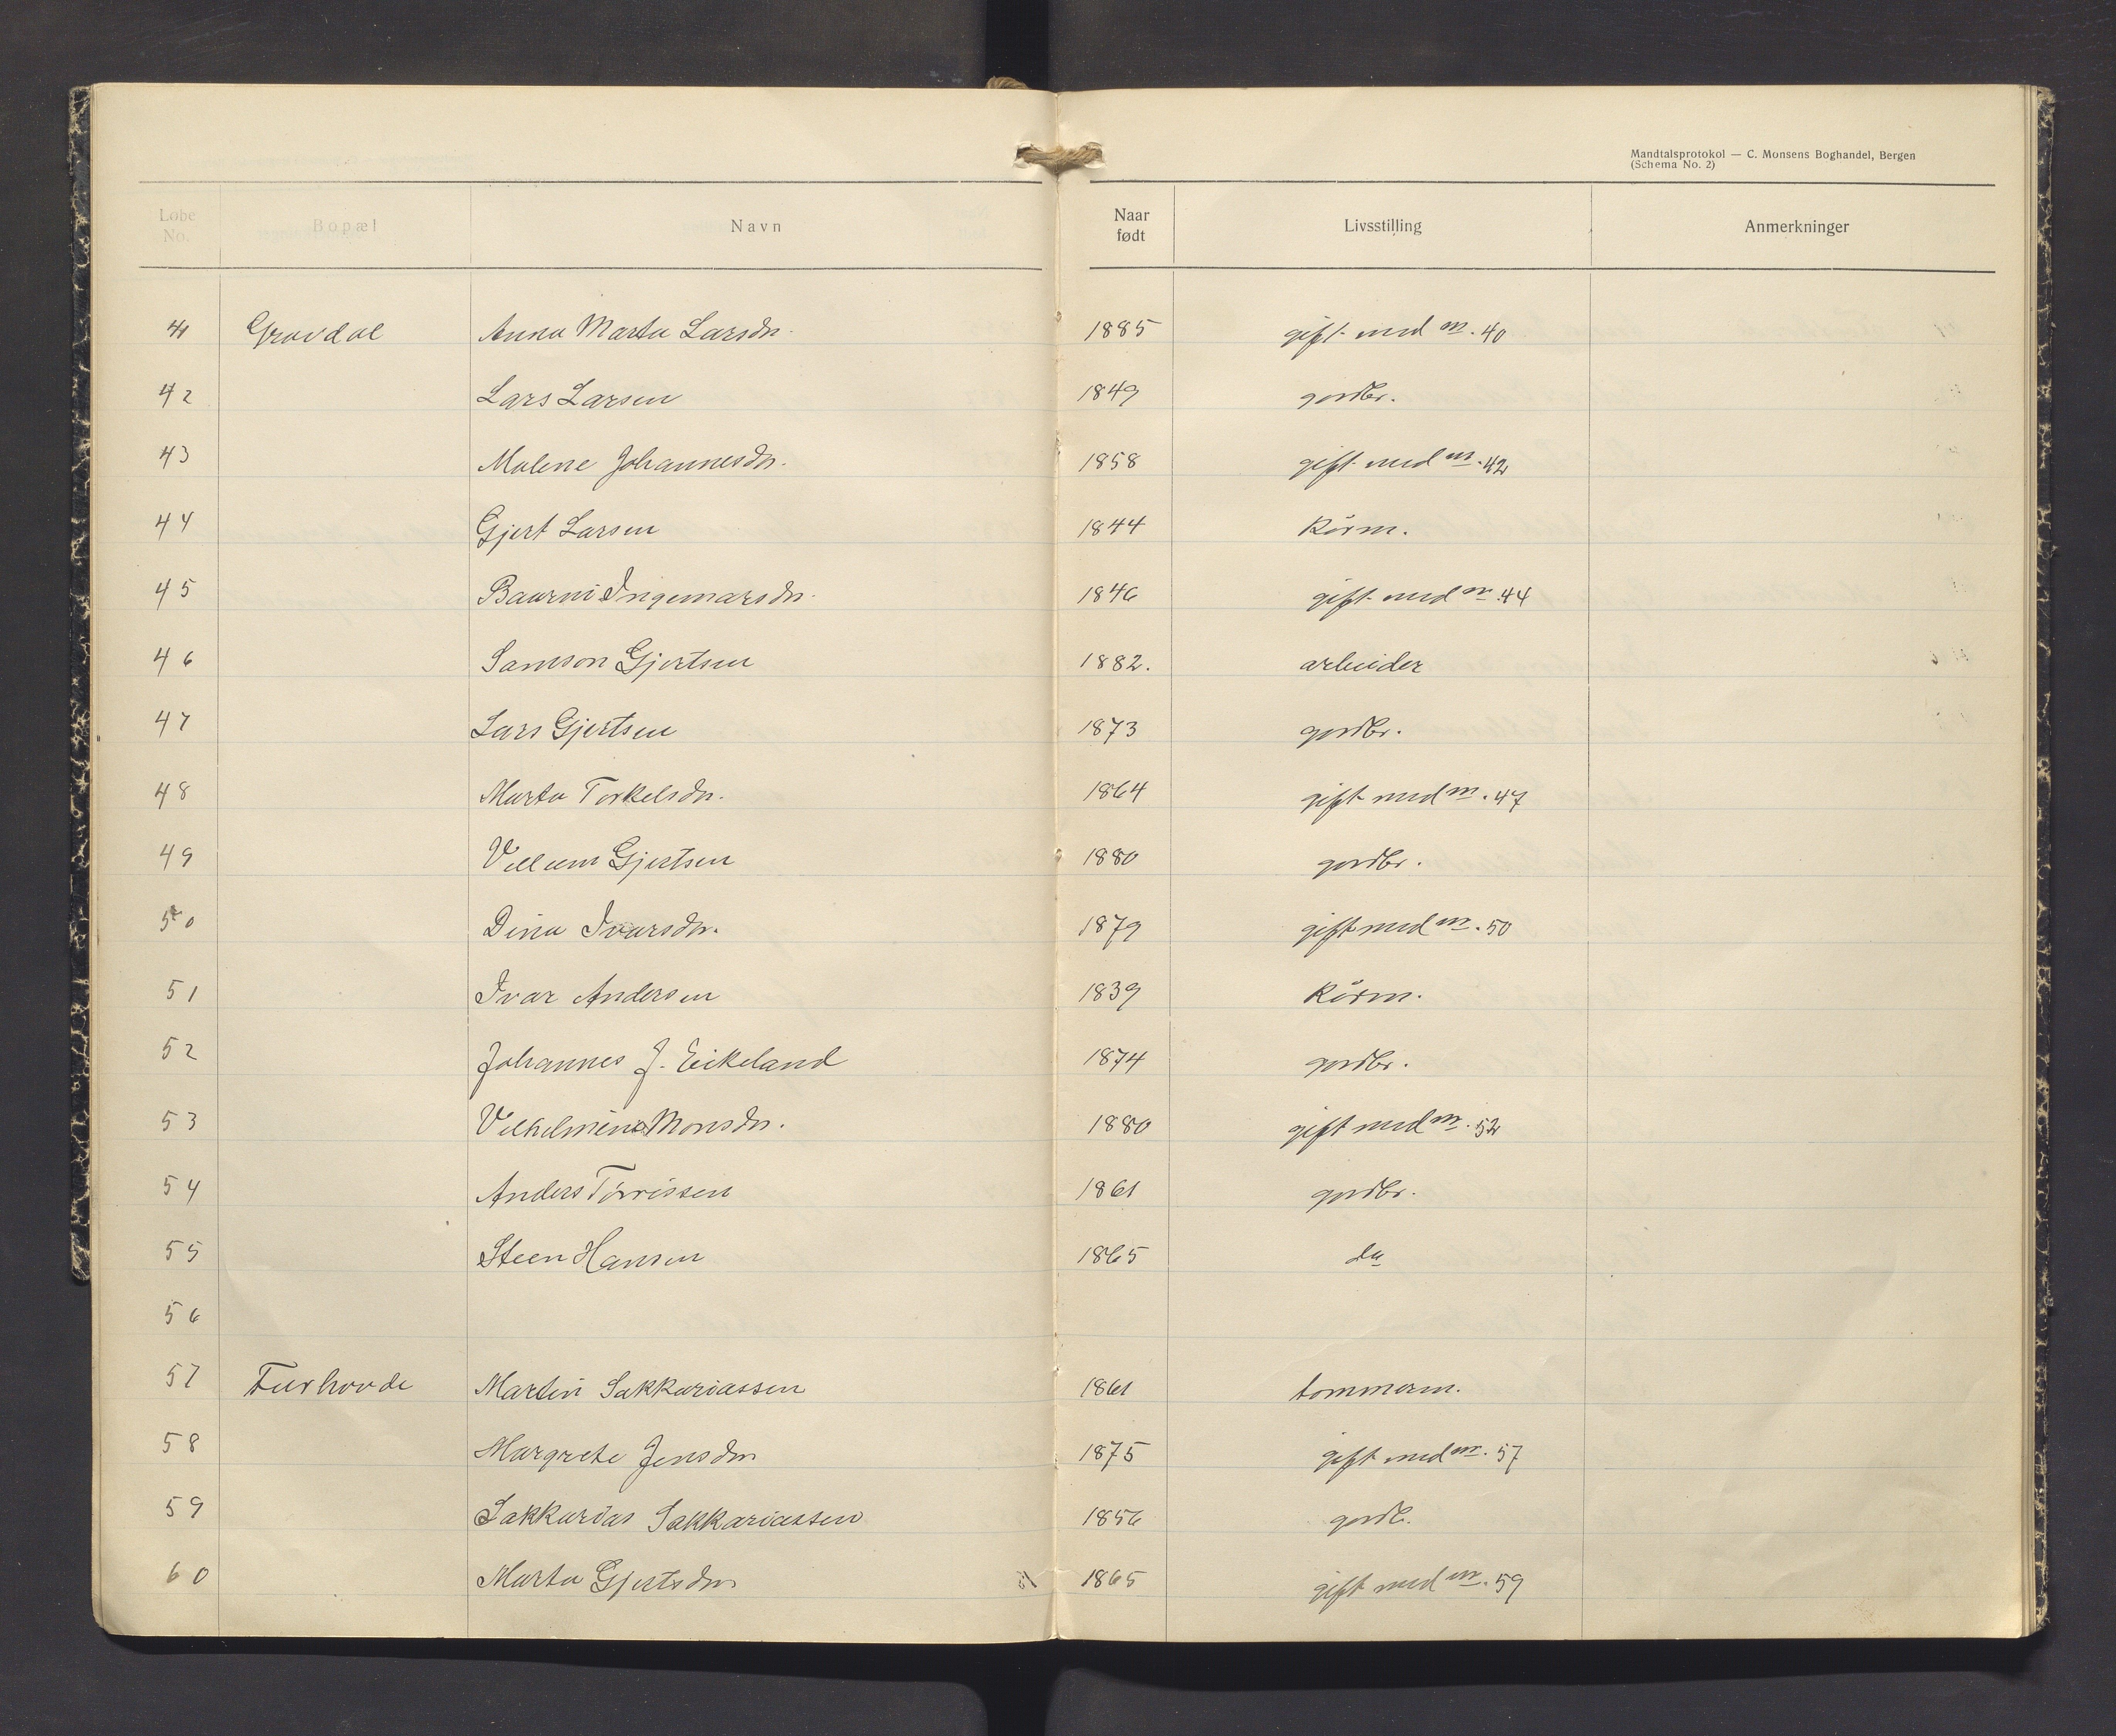 Mandtalsprotokol — C. Monsens Boghandel, Bergen
(Schema No. 2)
Løbe No. Bopæl Navn Naar født Livsstilling Anmerkninger
41 Gravdal Anna Marta Larsdr. 1885 gift med m. 40
42 Lars Larsen 1849 gordbr.
43 Malene Johannesdr. 1858 gift med m. 42
44 Gjert Larsen 1844 Kårm.
45 Ingemarsdr. 1846 gift med m. 44
46 Samson Gjertsen 1882. arbeider
47 Lars Gjertsen 1873 gordbr.
48 Marta Torkelsdr. 1864 gift med m. 47
49 Vellum Gjertsen 1880 gordbr.
50 Dina Ivarsdr. 1879 gift med m. 50
51 Ivar Andersen 1839 Kårm.
52 Johannes J. Eikeland 1874 gordbr.
53 Velhelmine Monsdr. 1880 gift med m. 52
54 Anders Tørrissen 1861 gordbr.
55 Steen Hansen 1865 do
56
57 Furhovde Martin Sakkariassen 1861 tommerm.
58 Margrete Jensdr 1875 gift med m. 57
59 Sakkarias Sakkariassen 1856 gordb.
60 Marta Gjertsdr 1865 gift med m. 59